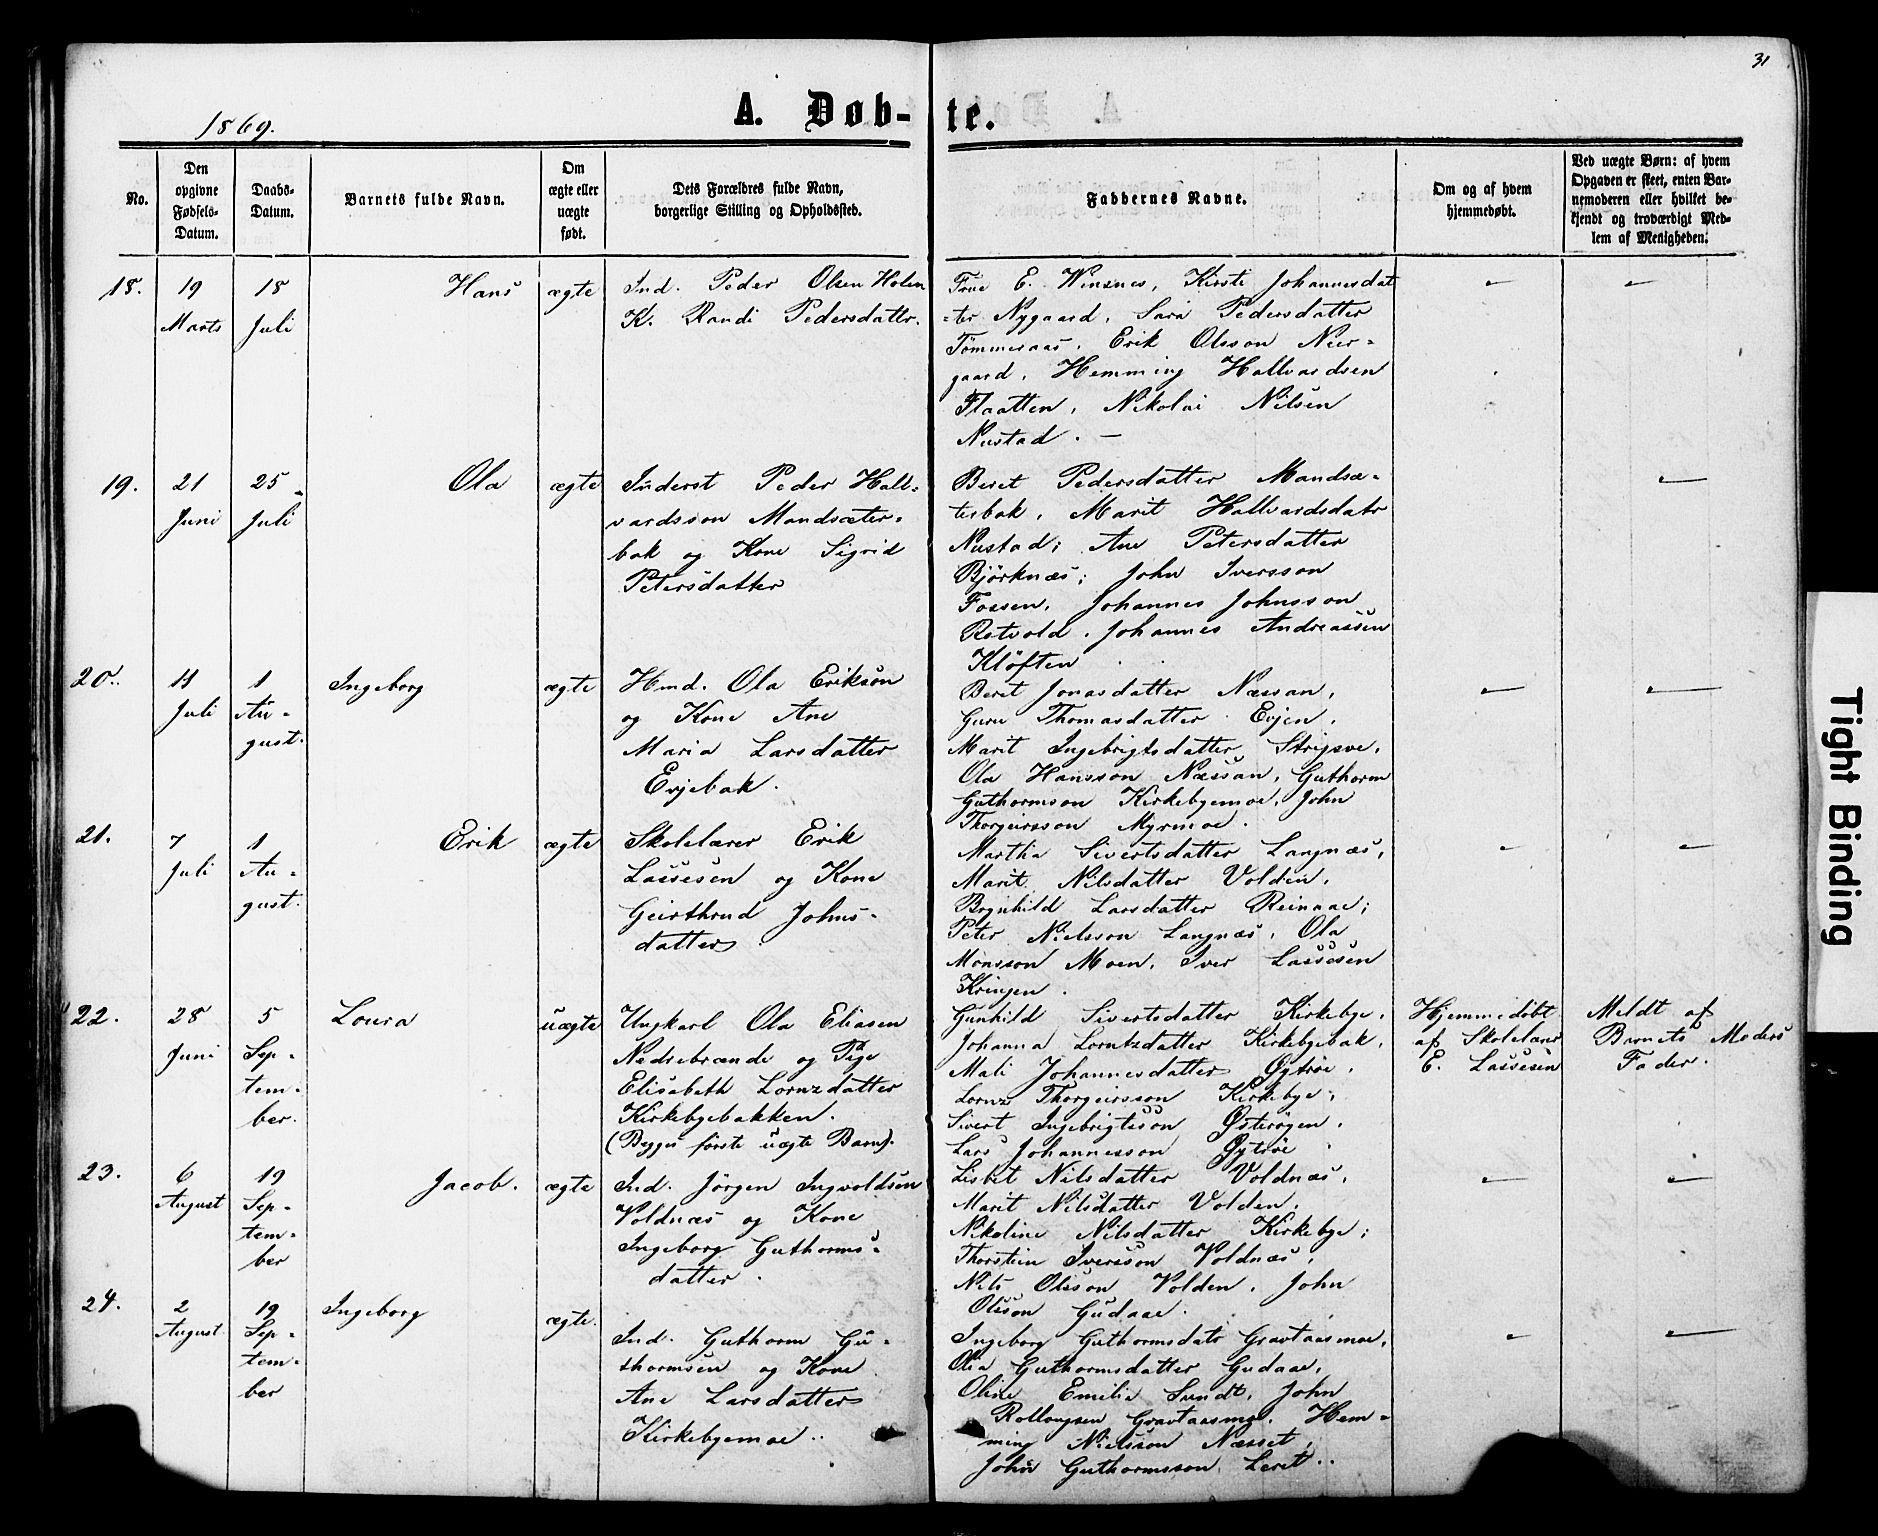 31
1869.
A. Døb-te.
No.
Den opgivne Fødsels-Datum.
Daabs-Datum.
Barnets fulde Navn.
Om ægte eller uægte født.
Dets Forældres fulde Navn, borgerlige Stilling og Opholdssted.
Faddernes Navne.
Om og af hvem hjemmedøbt.
Ved uægte Børn: af hvem Opgaven er skeet, enten Barnemoderen eller hvilket bekjendt og troværdigt Medlem af Menigheden.
18.
19 Marts
18 Juli
Hans
ægte
Ind. Peder Olsen Holem
K. Randi Pedersdattr.
Frue E. Winsnes, Kirsti Johannesdat
-ter Nygaard, Sara Pedersdatter
Tømmeraas, Erik Olsson Neer-
gaard, Hemming Hallvardsen
Flaatten, Nikolai Nilsen
Nustad. —
19.
21 Juni
25 Juli
Ola
ægte
Inderst Peder Hall-
vardsson Mandsæter-
bak og Kone Sigrid
Petersdatter
Beret Pedersdatter Mandsæ-
terbak, Marit Hallvardsdatr
Nustad; Ane Petersdatter
Björknæs; John Iversson
Fossen, Johannes Johnsson
Rotvold, Johannes Andreassen
Klöften
20.
11 Juli
1 Au-
gust.
Ingeborg
ægte
Hmd. Ola Erikson
og Kone Ane
Maria Larsdatter
Evjebak.
Beret Jonasdatter Næssan,
Guru Thomasdatter Evjen,
Marit Ingebrigtsdatter Strigsve,
Ola Hansson Næssan, Guthorm
Guthormson Kirkebyemoe, John
Thorgeirsson Myrmoe.
21.
7 Juli
1 Au-
gust.
Erik
ægte
Skolelærer Erik
Lassesen og Kone
Geirthrud Johns-
datter
Martha Sivertsdatter Langnæs,
Marit Nilsdatter Volden,
Brynhild Larsdatter Reinaae;
Peter Nielsson Langnæs, Ola
Monsson Moen, Iver Lassesen
Kringen.
22.
28 Juni
5 Sep-
tem-
ber.
Loura
uægte
Ungkarl Ola Eliasen
Nedrebrænde og Pige
Elisabeth Lornzdatter
Kirkebyebakken.
(Begges förste uægte Barn).
Gunhild Sivertsdatter Kirkebye,
Johanna Lorntzdatter Kirkebyebak,
Mali Johannesdatter Øytrøe,
Lornz Thorgeirsson Kirkebye,
Sivert Ingebrigtsson Østerøgen,
Lars Johannesson Øytrøe
Hjemmedöbt
af Skolelærer
E. Lassesen
Meldt af
Barnets Moders
Fader.
23.
6 August
19 Sep-
tem-
ber
Jacob.
ægte
Ind. Jörgen Ingvoldsen
Voldnæs og Kone
Ingeborg Guthorms-
datter.
Lisbet Nilsdatter Voldnæs,
Marit Nilsdatter Volden,
Nikoline Nilsdatter Kirkebye;
Thorstein Iversson Voldnæs,
Nils Olsson Volden, John
Olsson Gudaae.
24.
2 August
19 Sep-
tem-
ber
Ingeborg
ægte.
Ind. Guthorm Gu-
thormsen og Kone
Ane Larsdatter
Kirkebyemoe.
Ingeborg Guthormsdatr Gravaasmoe,
Olia Guthormsdatter Gudaae,
Oline Emilie Sundt, John
Rollougsen Gravaasmoe, Hem-
ming Nielsson Næsset,
John Guthormsson Leret.
Tight Binding